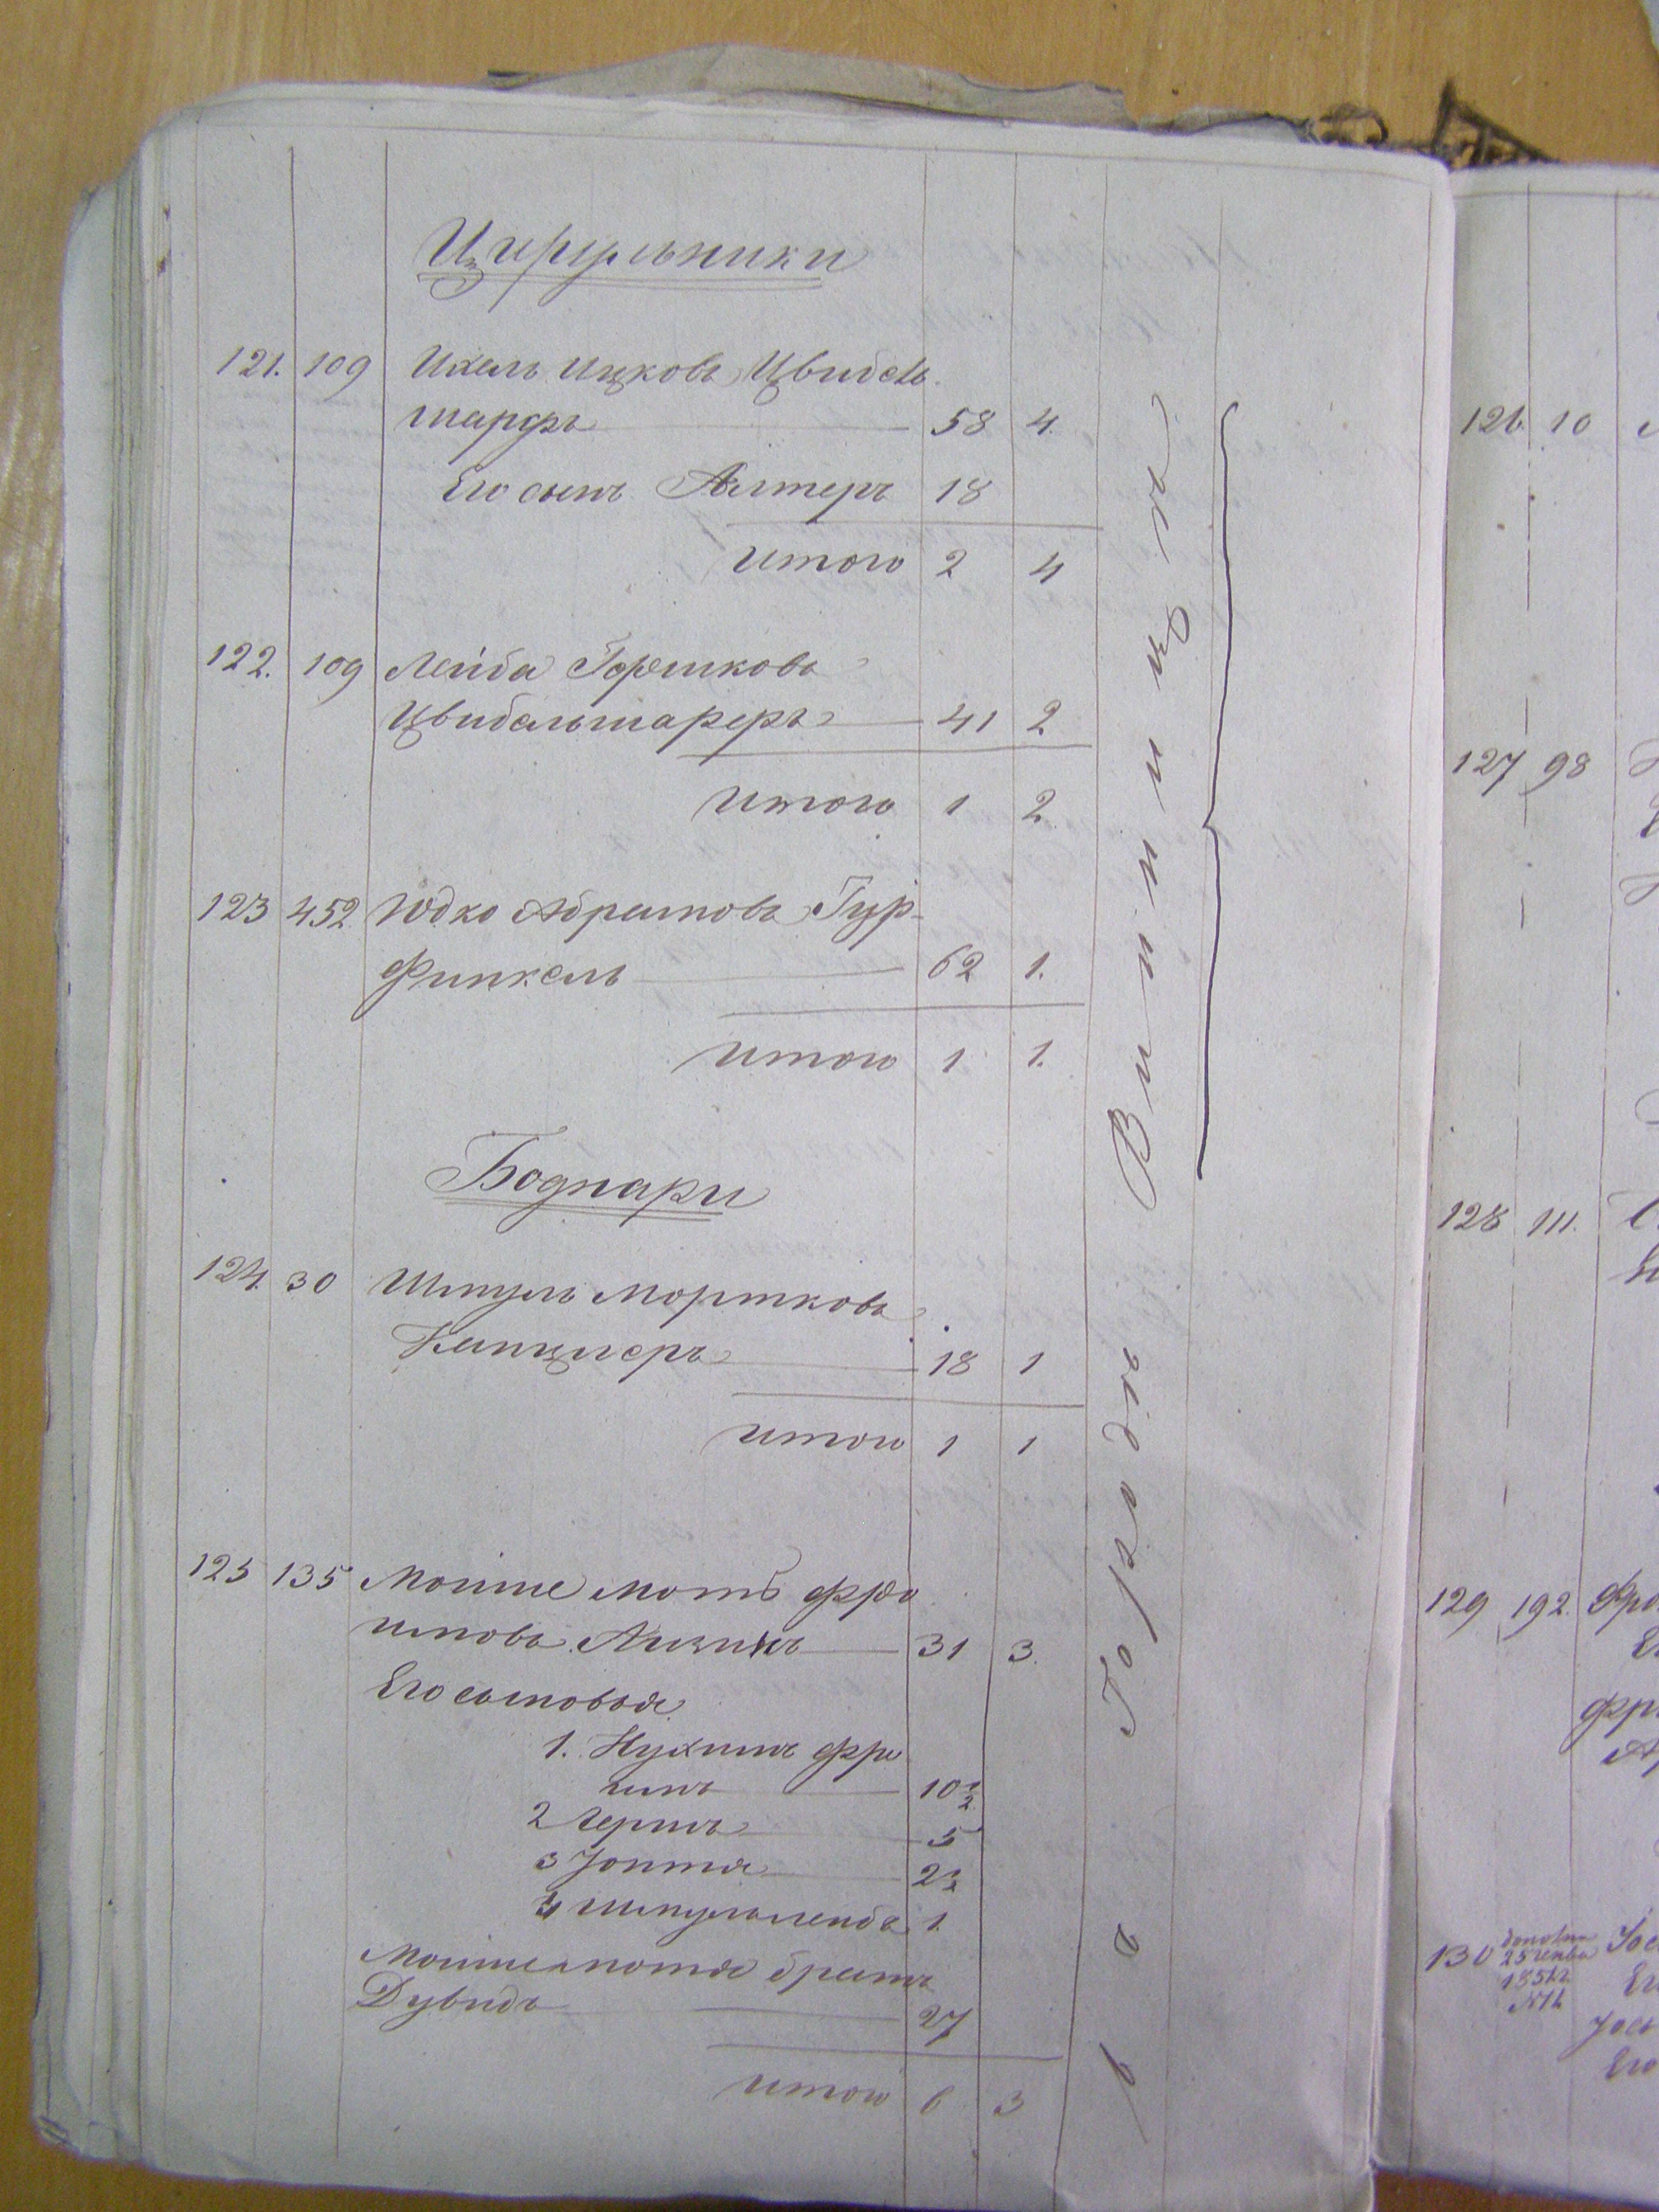 Цирульники
121. 109 Ихель Ицковъ Цвибель
шарфъ 58 4.
Его сынъ Алтеръ 18
Итого 2 4
122. 109 Лейба Гершковъ
Цвибельшарфъ 41 2
Итого 1 2
123 452 Юдко Абрамовъ Гур-
финкель 62 1.
Итого 1 1.
Боднари
124. 30 Шмуль Мортковъ
18 1
Итого 1 1
125 135 Мойше Мотъ Фро
имовъ 31 3.
Его сыновья
1. Нухимъ Фро
имъ 10½
2 Берка 5
3 2½
4 Шмульлейба 1.
Мойше Мотя братъ
Дувидъ 27
Итого 6 3
въ Городѣ Винницѣ
126. 10
127 98
128 111.
129 192. Фро
130
25
185